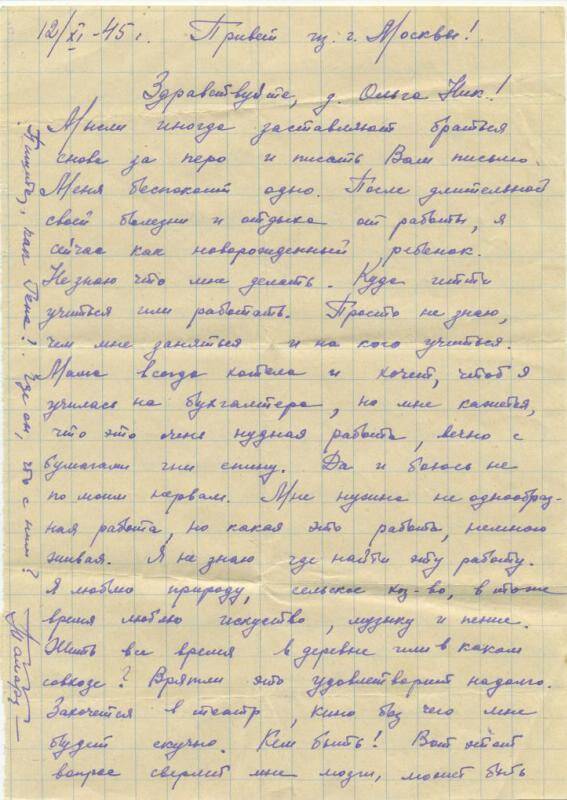 12/XI-45г. Привет из г. Москвы!
Здравствуйте, д. Ольга Ник.!
Мысли иногда заставляют браться
снова за перо и писать Вам письмо.
Меня беспокоит одно. После длительной
своей болезни и отдыха от работы, я
сейчас как новорожденный, ребенок.
Не знаю что мне делать. Куда итти
учиться или работать. Просто не знаю,
чем мне заняться и на кого учиться.
Мама всегда хотела и хочет, чтоб я
училась на бухгалтера, но мне кажется,
что это очень нудная работа, вечно с
бумагами гни спину. Да и боюсь не
по моим нервам. Мне нужна не однообраз-
ная работа, но какая это работа, немного
живая. Я не знаю где найти эту работу.
Я люблю природу, сельское хоз-во, в тоже
время люблю искуство, музыку и пение.
Жить все время в деревне или в каком
совхозе? Врятли это удовлетворит надолго.
Захочется в театр, кино без чего мне
будет скучно. Кем быть! Вот этот
вопрос сверлит мне мозги, может быть
Пишите, как Гена? Где он, что с ним?
Тамара